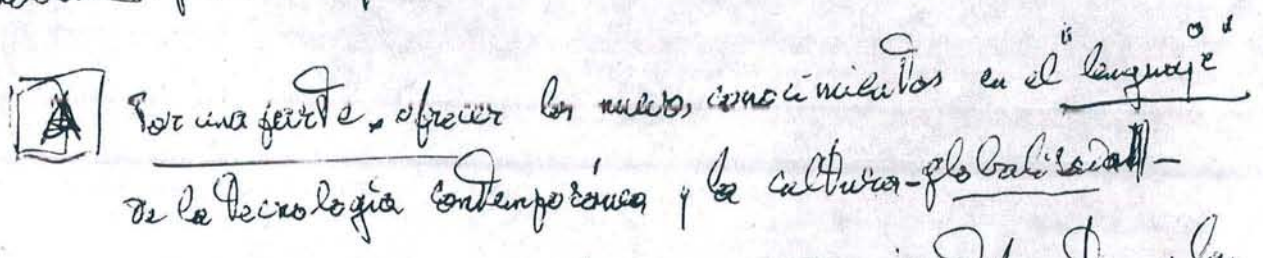 A Por una parte, ofrecer los nuevos conocimientos en el "lenguaje"
de la tecnología contemporánea y la cultura-globalizada-